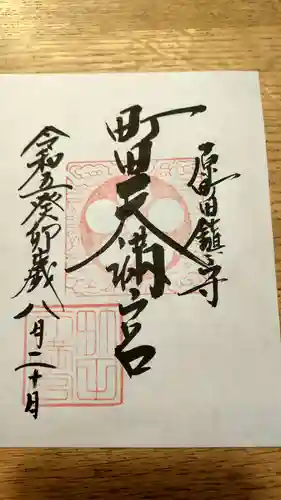 原町田鎮守
町田天満宮
令和五癸卯歳八月二十日